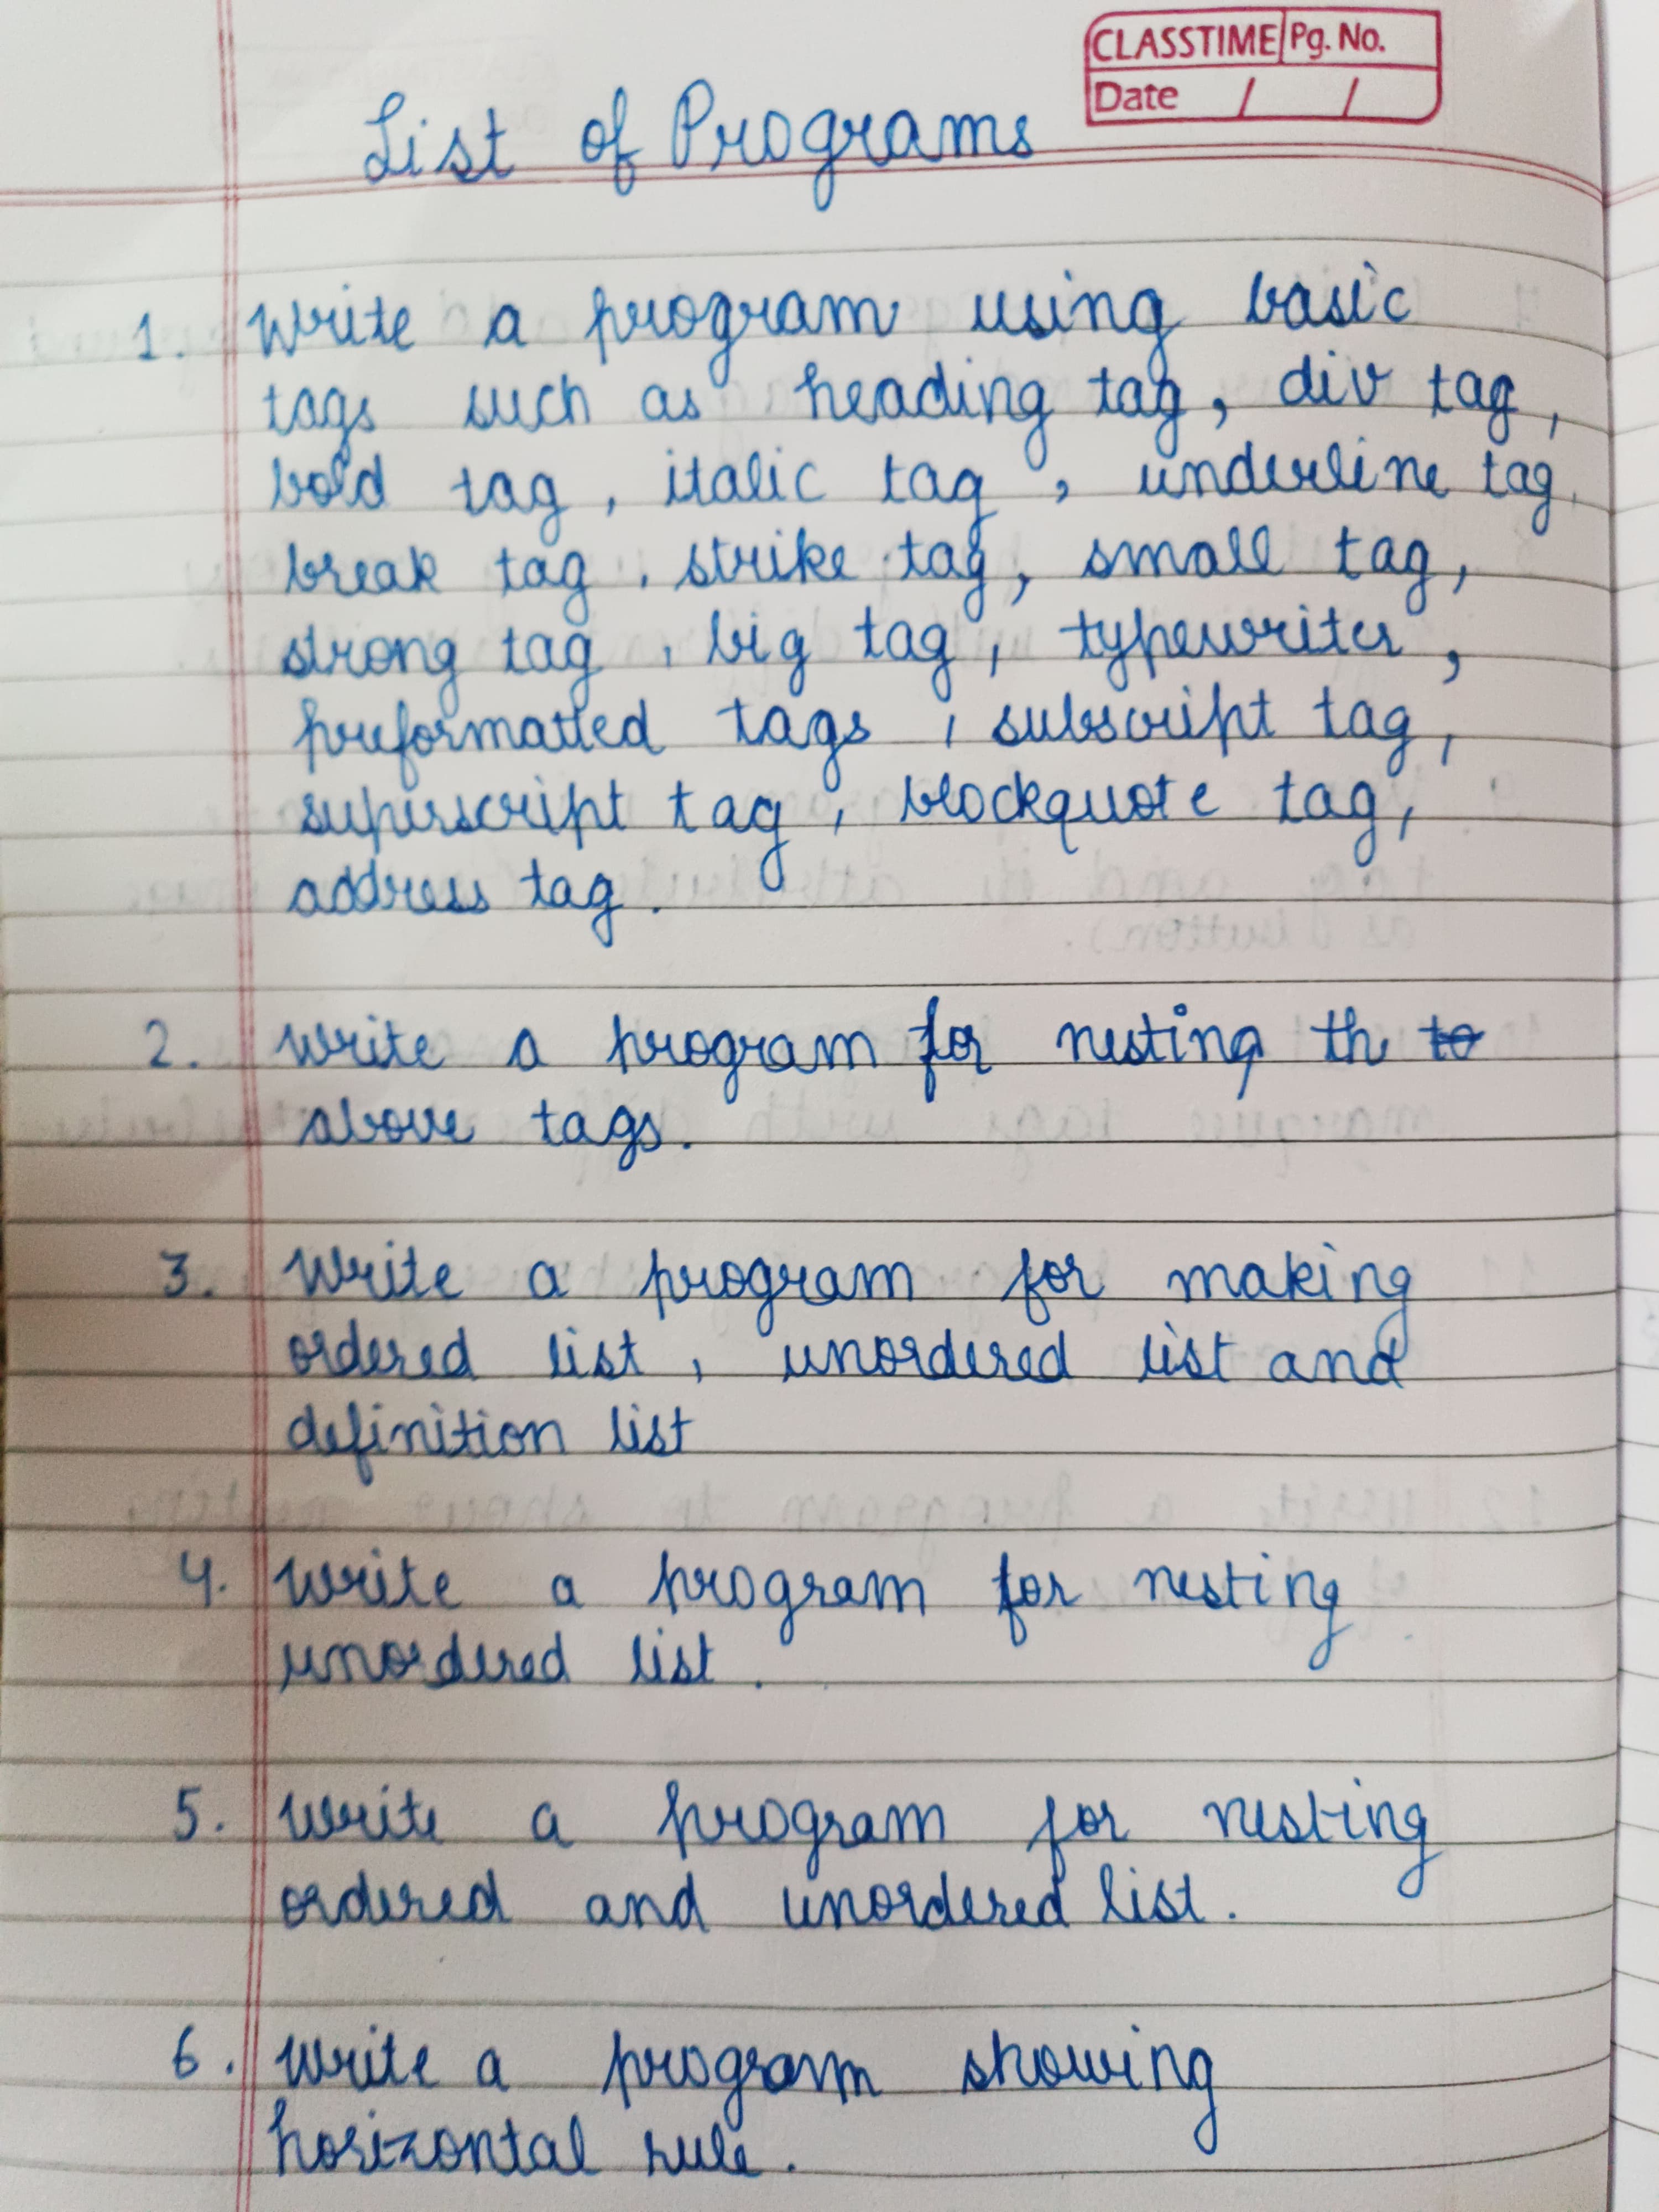 CLASSTIME Pg. No.
Date / /
List of Programs
1. Write a program using basic
tags such as heading tag, div tag,
bold tag, italic tag, underline tag,
break tag, strike tag, small tag,
strong tag, big tag, typewriter,
preformatted tags, subscript tag,
superscript tag, blockquote tag,
address tag.
2. Write a program for nesting th to
above tags.
3. Write a program for making
ordered list, unordered list and
definition list
4. Write a program for nesting
unordered list.
5. Write a program for nesting
ordered and unordered list.
6. Write a program showing
horizontal rule.